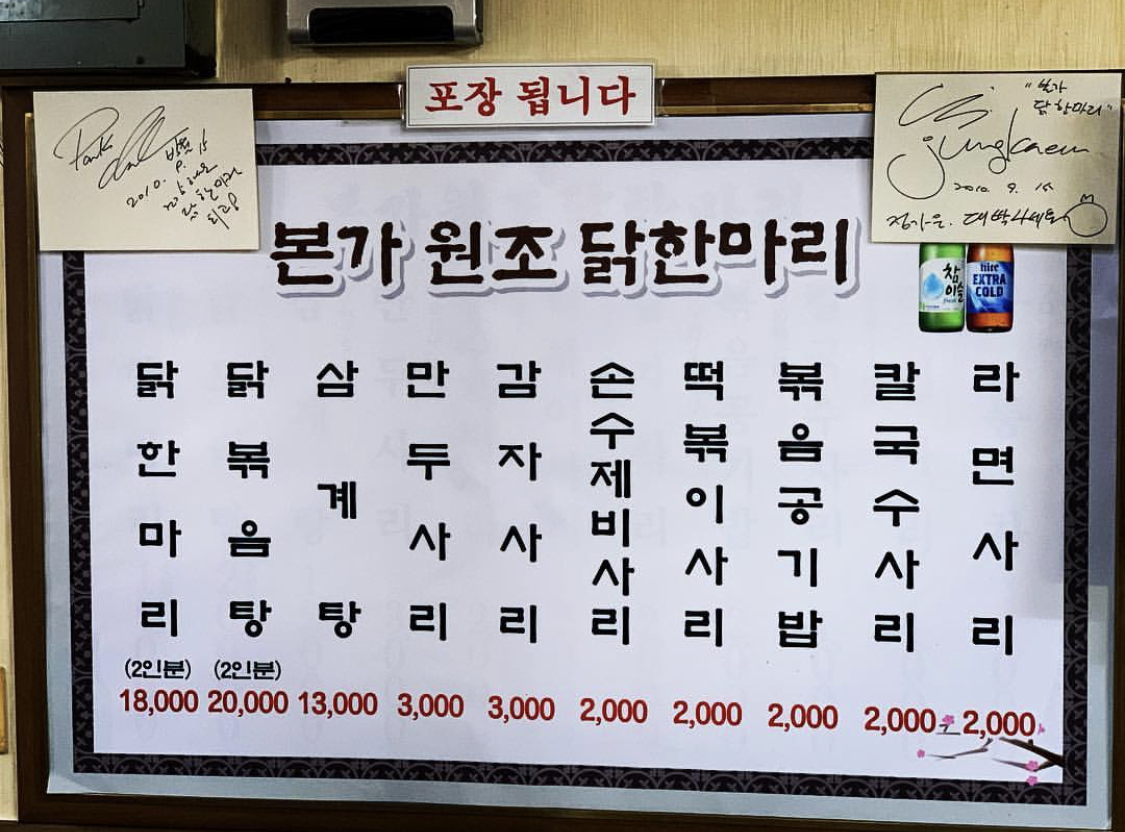 포장 됩니다
2010. 9. 15
"본가
닭한마리"
2010. 9. 15
본가 원조 닭한마리
참이슬
fresh
hite
EXTRA
COLD
닭한마리
(2인분)
18,000
닭볶음탕
(2인분)
20,000
삼계탕
13,000
만두사리
3,000
감자사리
3,000
손수제비사리
2,000
떡볶이사리
2,000
볶음공기밥
2,000
칼국수사리
2,000
라면사리
2,000